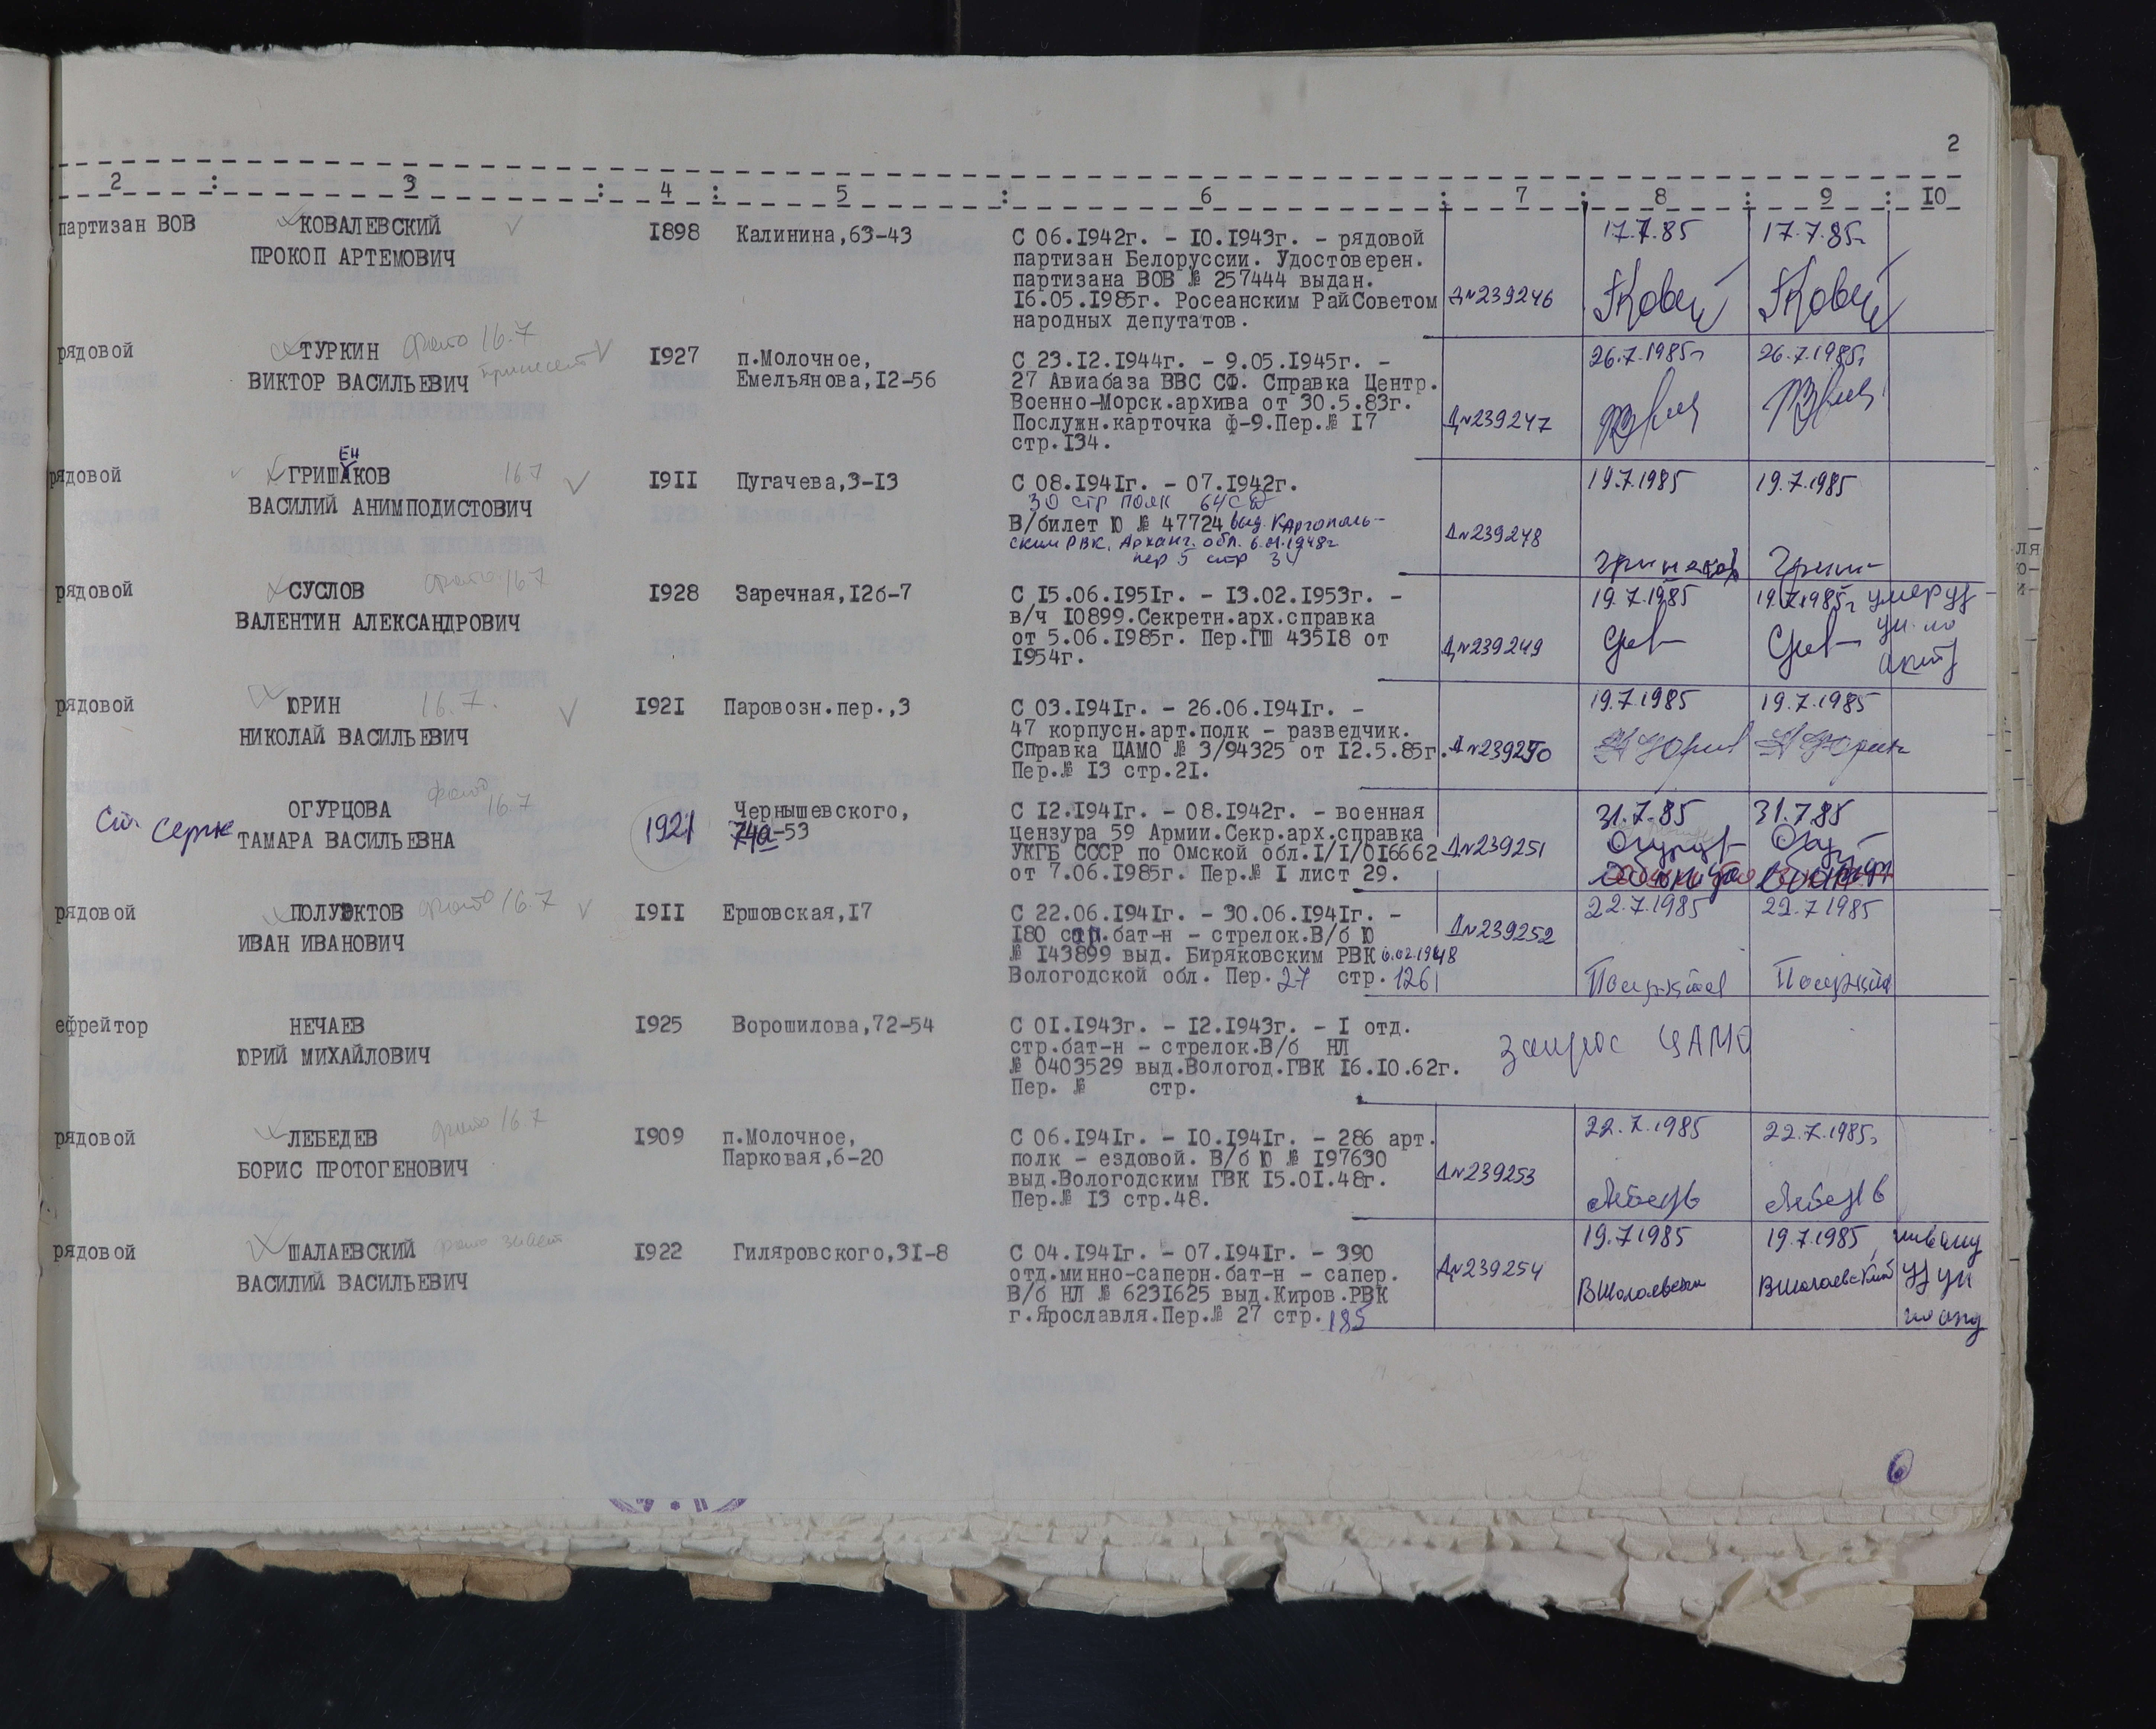 2
2 : 3 : 4 : 5 : 6 : 7 : 8 : 9 : 10
партизан ВОВ КОВАЛЕВСКИЙ 1898 Калинина,63-43 С 06.1942г. - 10.1943г. - рядовой 17.7.85 17.7.85г
ПРОКОП АРТЕМОВИЧ партизан Белоруссии. Удостоверен.
партизана ВОВ № 257444 выдан.
16.05.1985г. Росеанским РайСоветом Д№239246
народных депутатов.
рядовой ТУРКИН фото 16.7 1927 п.Молочное, С 23.12.1944г. - 9.05.1945г. - 26.7.1985г 26.7.1985г
ВИКТОР ВАСИЛЬЕВИЧ принесет Емельянова,12-56 27 Авиабаза ВВС СФ. Справка Центр.
Военно-Морск.архива от 30.5.83г.
Послужн.карточка ф-9.Пер.№ 17 Д№239247
стр.134.
ЕН
рядовой ГРИШАКОВ 16.7 1911 Пугачева,3-13 С 08.1941г. - 07.1942г. 19.7.1985 19.7.1985
30 стр полк 64 СД
ВАСИЛИЙ АНИМПОДИСТОВИЧ В/билет Ю № 47724 выд. Каргополь-
ским РВК, Арханг. обл. 6.01.1948г Д№239248
пер 5 стр 34
рядовой СУСЛОВ фото 16.7 1928 Заречная,12б-7 С 15.06.1951г. - 13.02.1953г. - 19.7.1985 19.7.1985г
ВАЛЕНТИН АЛЕКСАНДРОВИЧ в/ч 10899.Секретн.арх.справка
от 5.06.1985г. Пер.ГШ 43518 от Д№239249
1954г.
рядовой ЮРИН 16.7. 1921 Паровозн.пер.,3 С 03.1941г. - 26.06.1941г. - 19.7.1985 19.7.1985
НИКОЛАЙ ВАСИЛЬЕВИЧ 47 корпусн.арт.полк - разведчик.
Справка ЦАМО № 3/94325 от 12.5.85г. Д№239250 Н Юрин
Пер.№ 13 стр.21.
ОГУРЦОВА фото 16.7 Чернышевского, С 12.1941г. - 08.1942г. - военная 31.7.85 31.7.85
ТАМАРА ВАСИЛЬЕВНА 1921 74а-53 цензура 59 Армии.Секр.арх.справка
УКГБ СССР по Омской обл.1/1/016662 Д№239251
от 7.06.1985г. Пер.№ 1 лист 29.
рядовой ПОЛУЭКТОВ фото 16.7 1911 Ершовская,17 С 22.06.1941г. - 30.06.1941г. - 22.7.1985 22.7.1985
ИВАН ИВАНОВИЧ 180 стр.бат-н - стрелок.В/б Ю Д№239252
№ 143899 выд. Биряковским РВК 6.02.1948
Вологодской обл. Пер. 27 стр. 126
ефрейтор НЕЧАЕВ 1925 Ворошилова,72-54 С 01.1943г. - 12.1943г. - 1 отд.
ЮРИЙ МИХАЙЛОВИЧ стр.бат-н - стрелок.В/б НЛ запрос ЦАМО
№ 0403529 выд.Вологод.ГВК 16.10.62г.
Пер. № стр.
рядовой ЛЕБЕДЕВ фото 16.7 1909 п.Молочное, С 06.1941г. - 10.1941г. - 286 арт. 22.7.1985 22.7.1985г
БОРИС ПРОТОГЕНОВИЧ Парковая,6-20 полк - ездовой. В/б Ю № 197630
выд.Вологодским ГВК 15.01.48г. Д№239253
Пер.№ 13 стр.48.
рядовой ШАЛАЕВСКИЙ 1922 Гиляровского,31-8 С 04.1941г. - 07.1941г. - 390 19.7.1985 19.7.1985
ВАСИЛИЙ ВАСИЛЬЕВИЧ отд.минно-саперн.бат-н - сапер. Д№239254
В/б НЛ № 6231625 выд.Киров.РВК ВШалаевский
г.Ярославля.Пер.№ 27 стр. 185
6